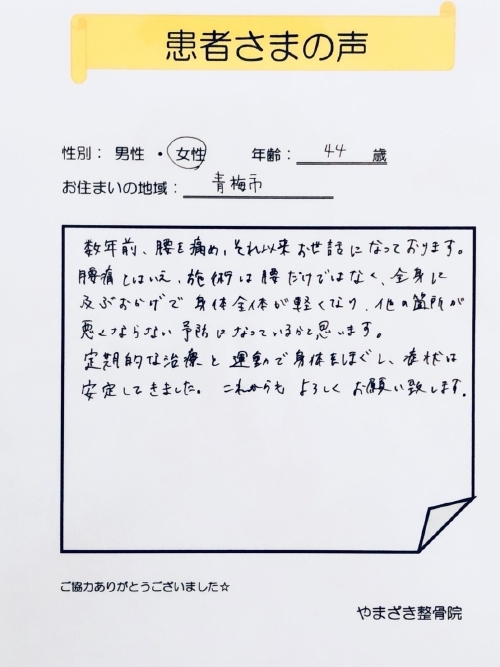 患者さまの声
性別： 男性 ・ 女性 年齢： 44 歳
お住まいの地域： 青梅市
数年前、腰を痛め、それ以来お世話になっております。
腰痛とはいえ、施術は腰だけではなく、全身に
及ぶおかげで身体全体が軽くなり、他の箇所が
悪くならない予防になっているかと思います。
定期的な治療と運動で身体をほぐし、症状は
安定してきました。これからもよろしくお願い致します。
ご協力ありがとうございました☆
やまざき整骨院